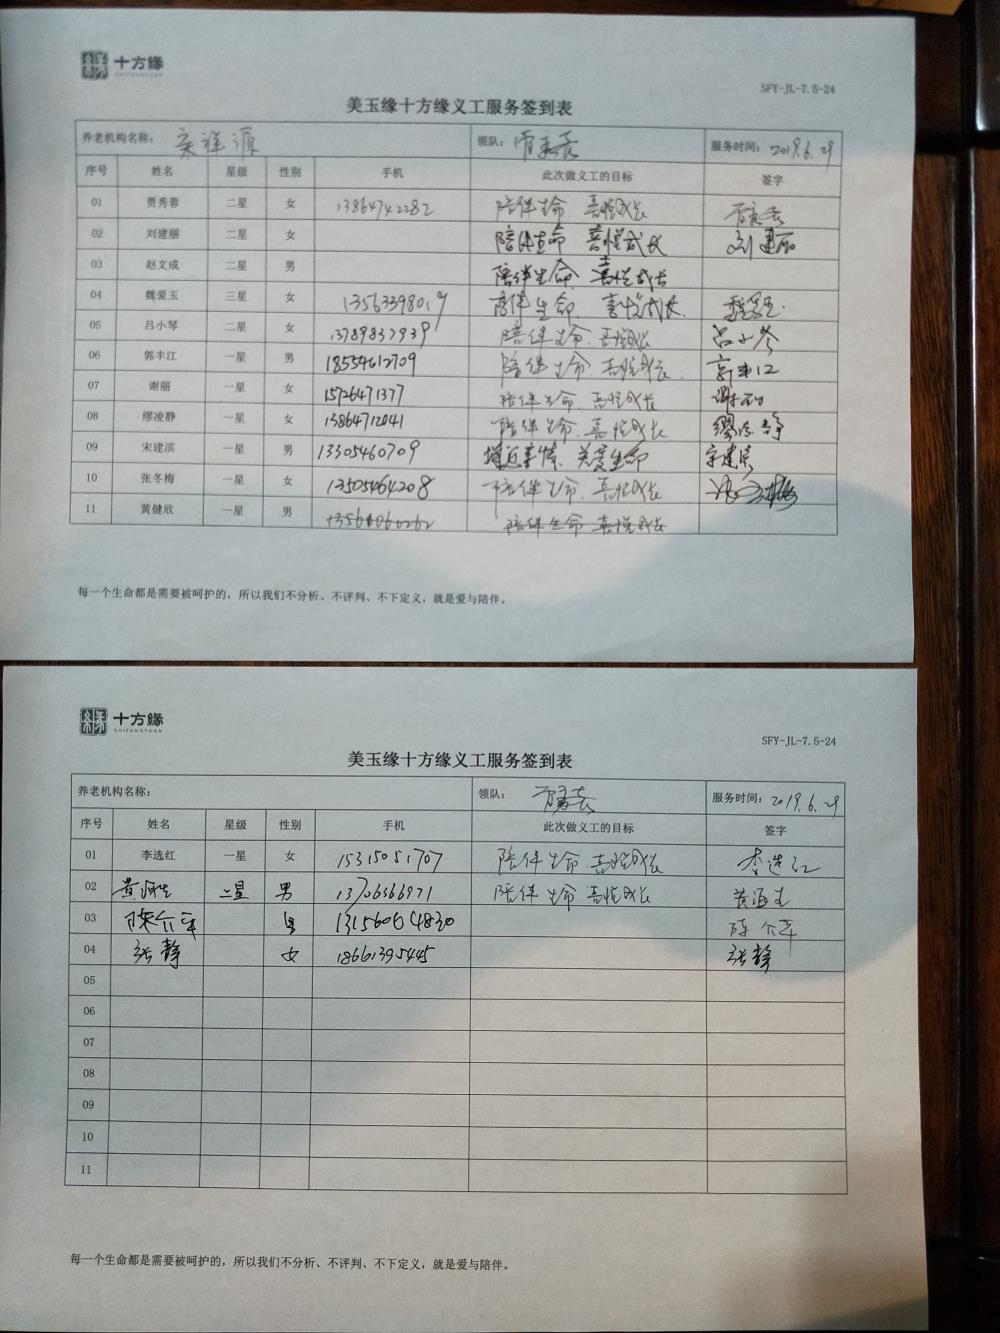 十方緣
SHIFANGYUAN
SFY-JL-7.5-24
美玉缘十方缘义工服务签到表
养老机构名称： 祥源 领队： 服务时间：2019.6.29
序号 姓名 星级 性别 手机 此次做义工的目标 签字
01 贾秀蓉 二星 女 13864742282 陪伴生命、喜悦成长
02 刘建丽 二星 女 陪伴生命 喜悦成长 刘建丽
03 赵文成 二星 男 陪伴生命、喜悦成长
04 魏爱玉 三星 女 13563398019 陪伴生命、喜悦成长 魏爱玉
05 吕小琴 二星 女 13789837939 陪伴生命、喜悦成长 吕小琴
06 郭丰江 一星 男 18554612709 陪伴生命 喜悦成长 郭丰江
07 谢丽 一星 女 15726471377 陪伴生命、喜悦成长 谢丽
08 缪凌静 一星 女 13864712041 陪伴生命、喜悦成长 缪凌静
09 宋建滨 一星 男 13305460709 增近亲情、关爱生命 宋建滨
10 张冬梅 一星 女 13505464208 陪伴生命、喜悦成长 张冬梅
11 黄健欣 一星 男 陪伴生命 喜悦成长
每一个生命都是需要被呵护的，所以我们不分析、不评判、不下定义，就是爱与陪伴。
十方緣
SHIFANGYUAN
SFY-JL-7.5-24
美玉缘十方缘义工服务签到表
养老机构名称： 领队： 服务时间：2019.6.29
序号 姓名 星级 性别 手机 此次做义工的目标 签字
01 李选红 一星 女 15315051707 陪伴生命、喜悦成长 李选红
02 黄海生 二星 男 13706366971 陪伴生命 喜悦成长 黄海生
03 13156004830
04 张静 女 18661395445 张静
05
06
07
08
09
10
11
每一个生命都是需要被呵护的，所以我们不分析、不评判、不下定义，就是爱与陪伴。